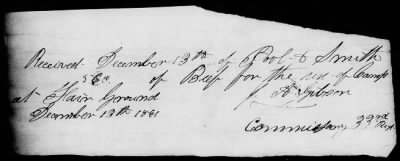 Received December 13th of Pool & Smith
of Beef for the use of Camp
at Fair Ground
December 13th 1861
Gibson
Commissary 33rd Regt